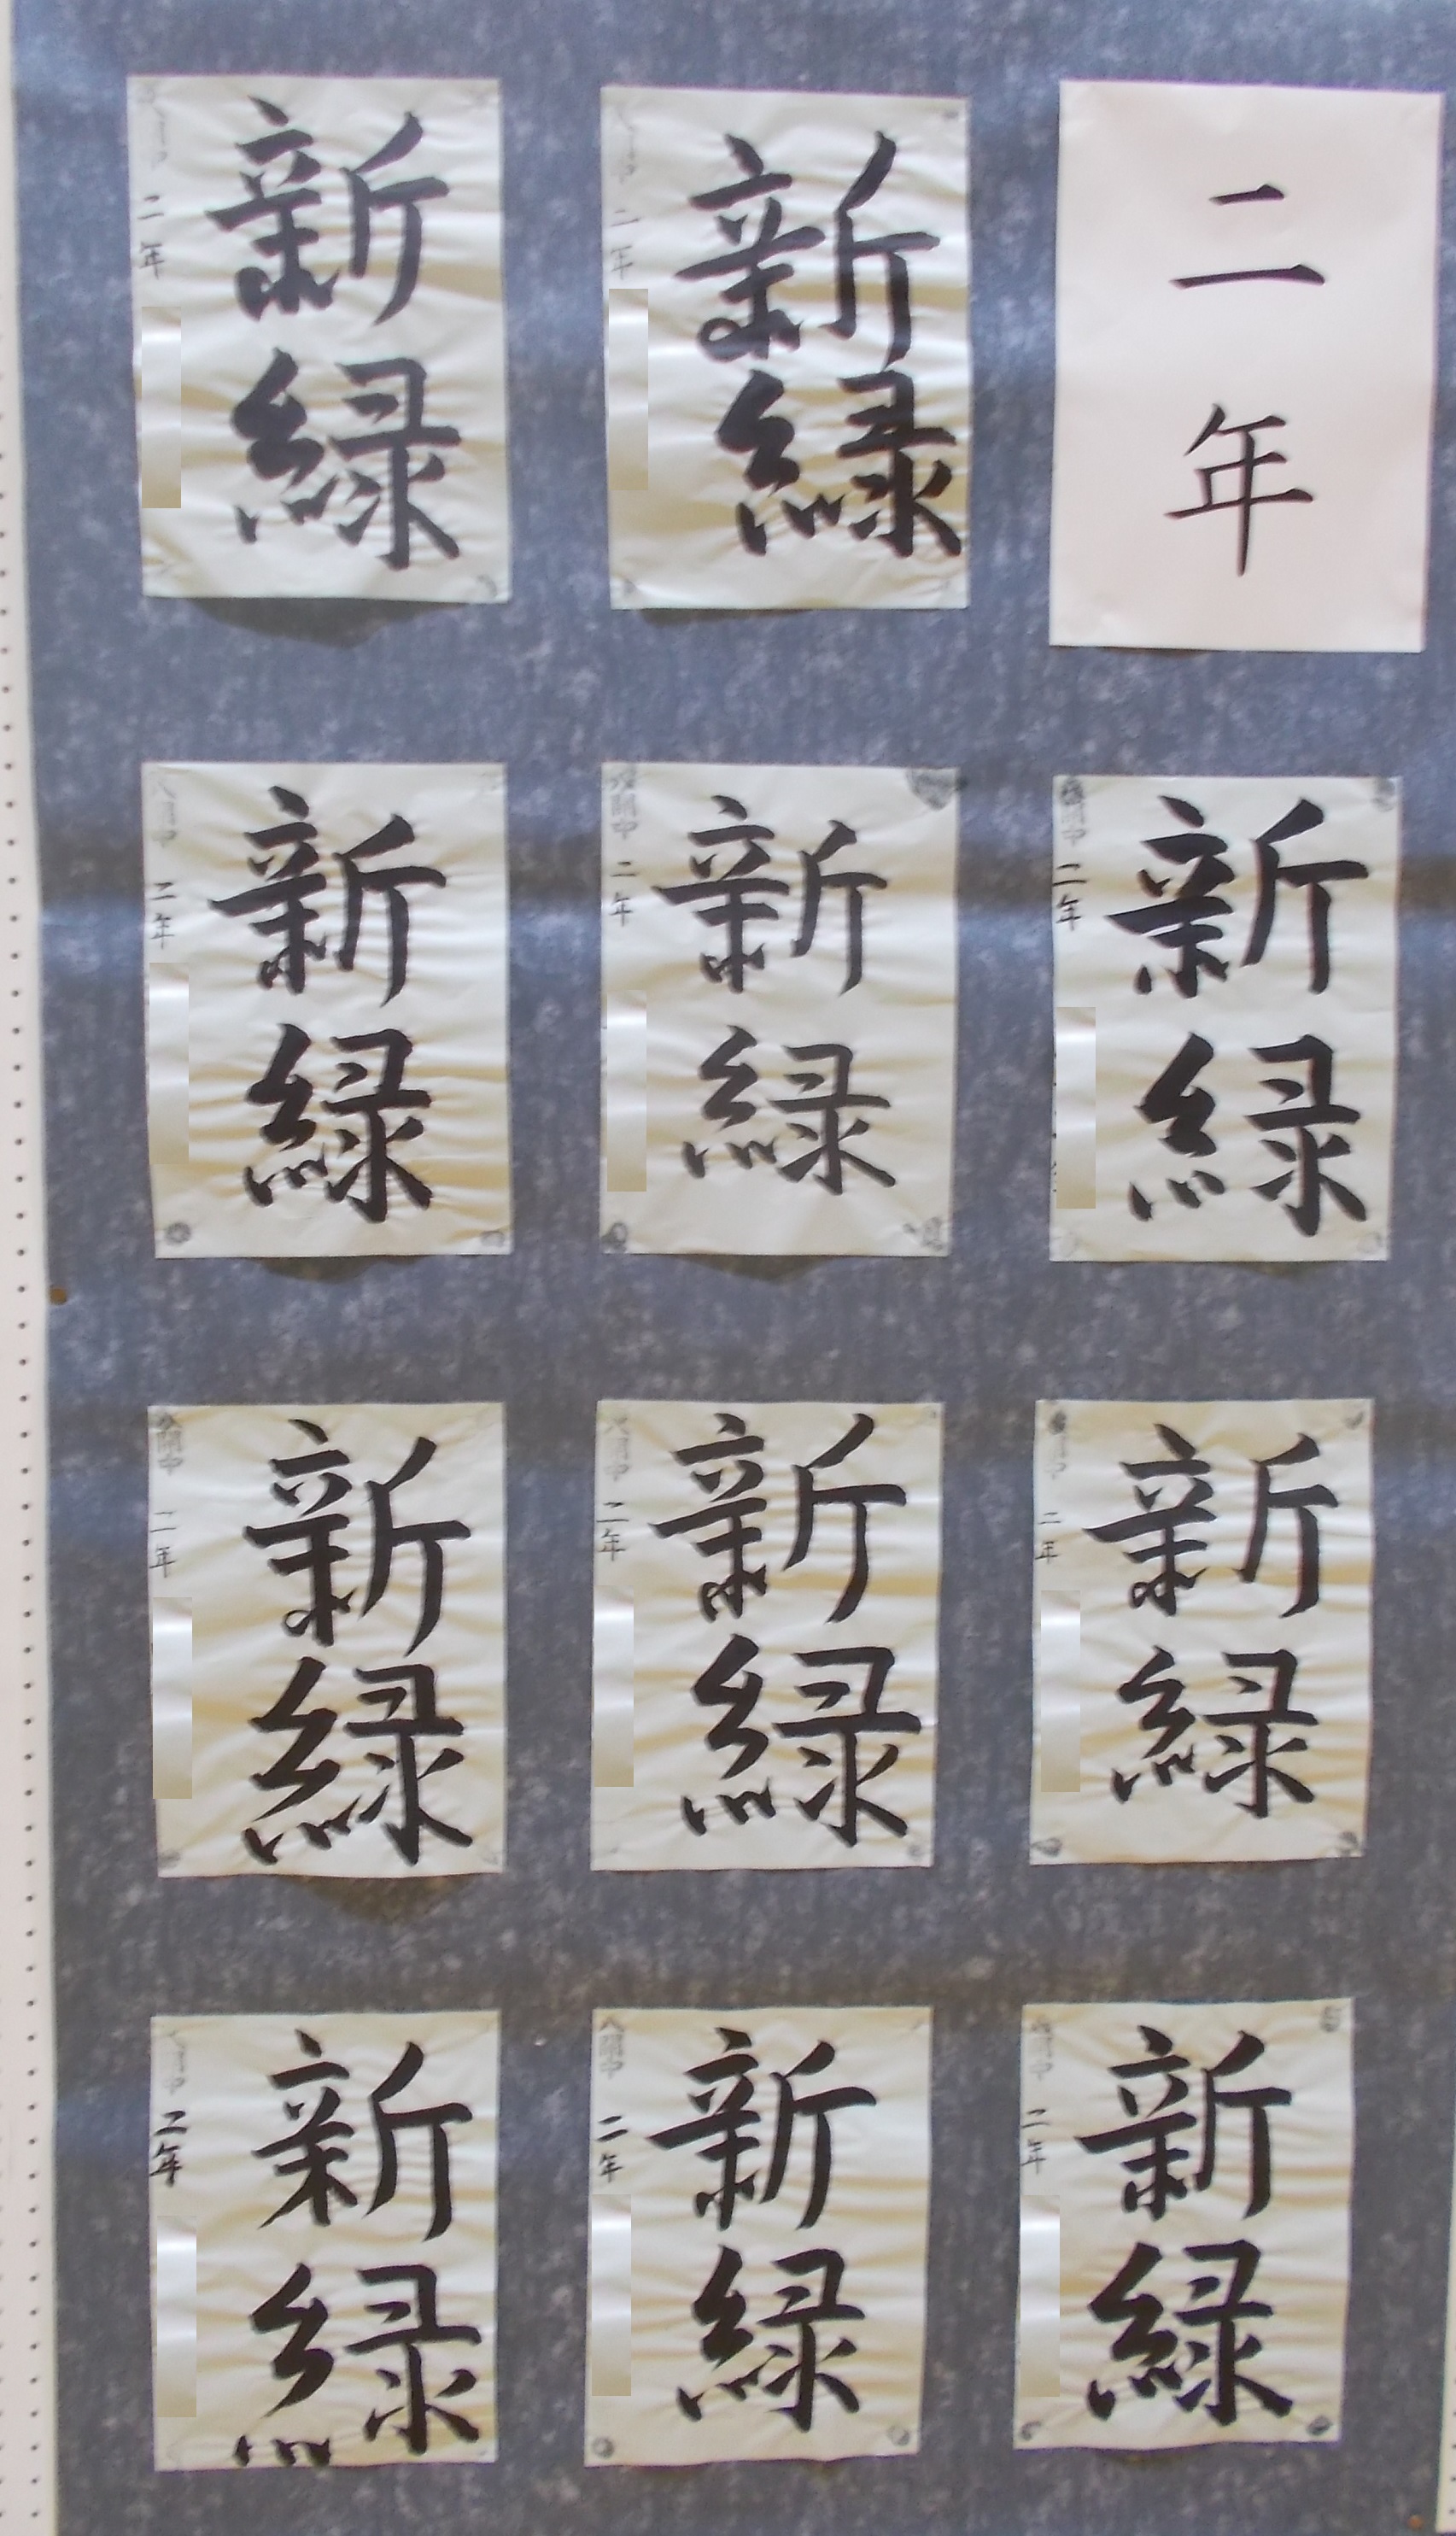 二年
新緑
二年
新緑
二年
新緑
二年
新緑
二年
新緑
二年
新緑
二年
新緑
二年
新緑
二年
新緑
二年
新緑
二年
新緑
二年